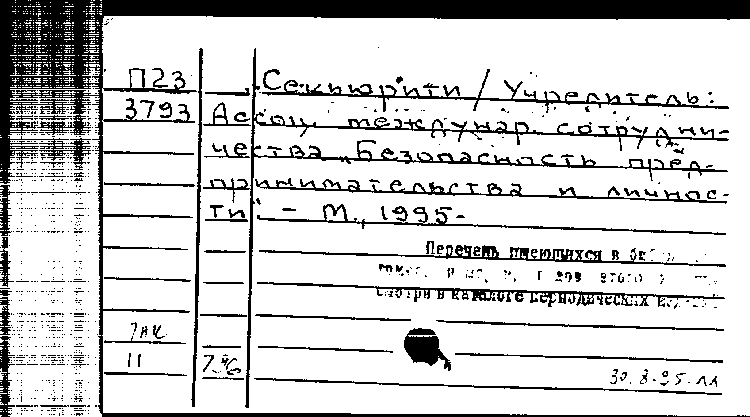 П23 „Секьюрити / Учредитель:
3793 Ассоц. междунар. сотрудни-
чества „Безопасность пред-
принимательства и личнос-
ти". - М., 1995-
Перечень имеющихся в
смотри в каталоге периодических
11
30.8.95.